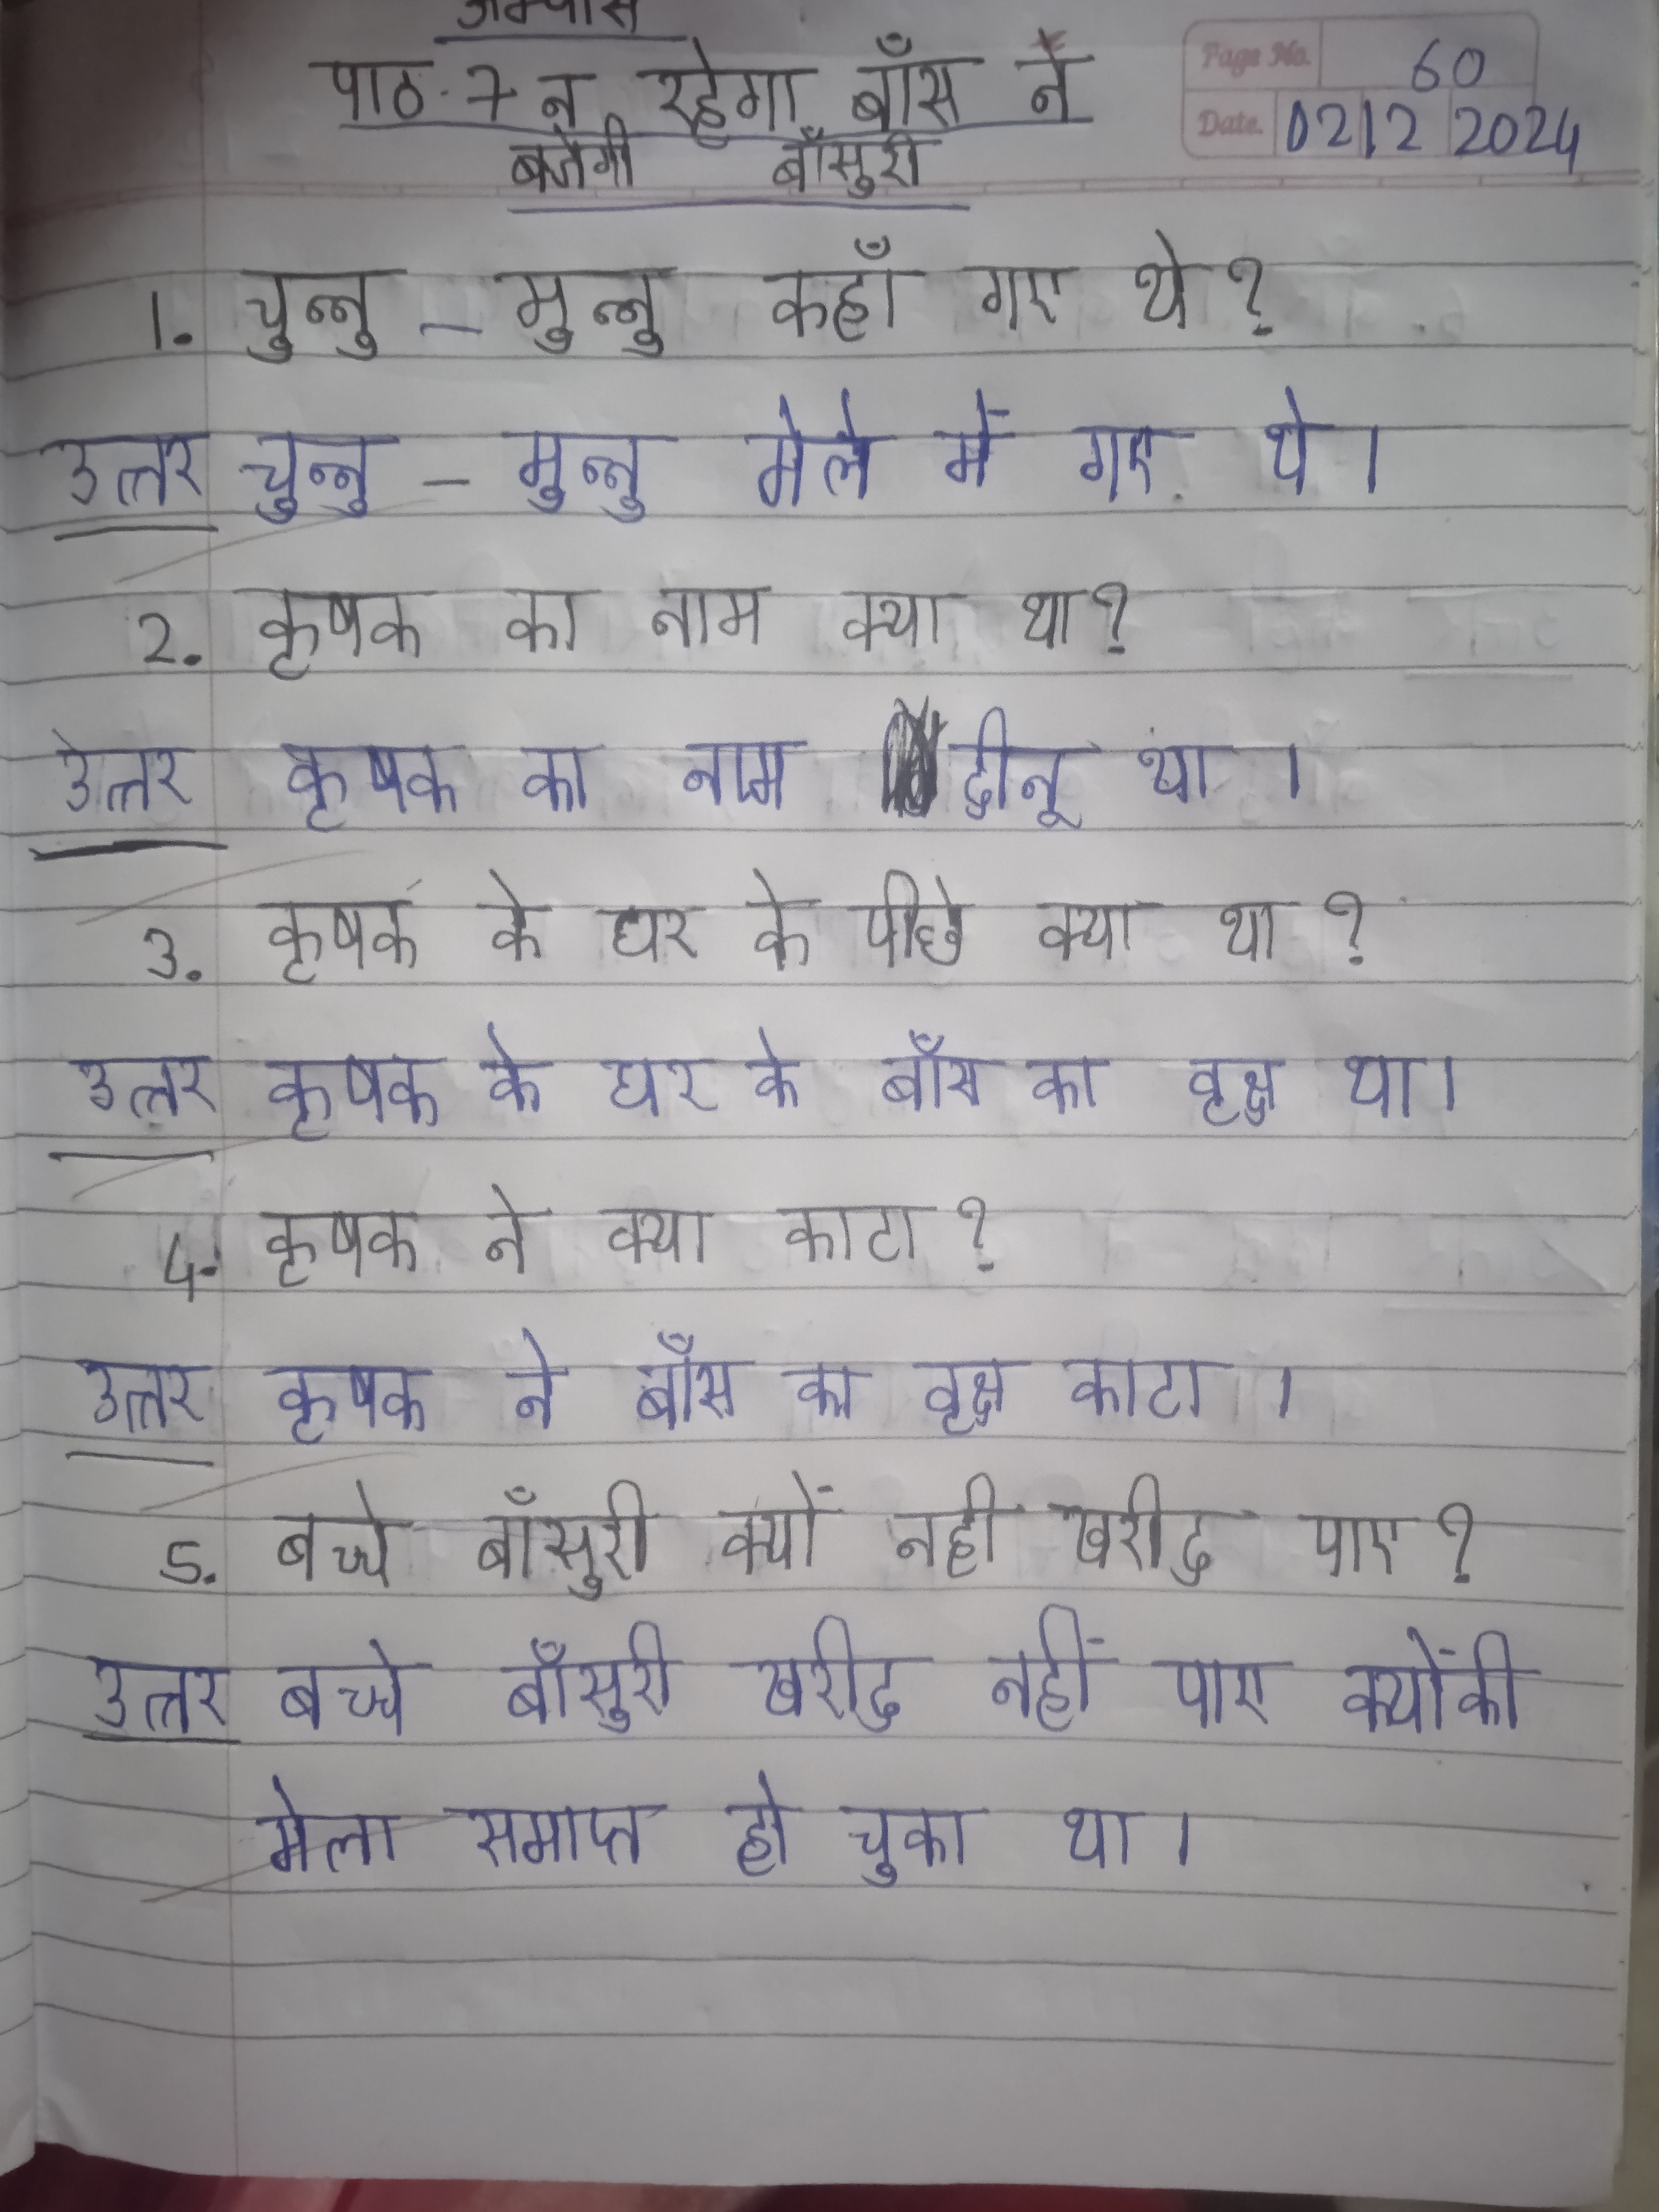 अभ्यास
पाठ-7 न रहेगा बाँस न
बजेगी बाँसुरी
Page No. 60
Date. 02 12 2024
1. चुन्नु - मुन्नु कहाँ गए थे?
उत्तर चुन्नु - मुन्नु मेले में गए थे।
2. कृषक का नाम क्या था?
उत्तर कृषक का नाम दीनू था ।
3. कृषक के घर के पीछे क्या था ?
उत्तर कृषक के घर के बाँस का वृक्ष था।
4. कृषक ने क्या काटा ?
उत्तर कृषक ने बाँस का वृक्ष काटा ।
5. बच्चे बाँसुरी क्यों नही खरीद पाए ?
उत्तर बच्चे बाँसुरी खरीद नहीं पाए क्योंकी
मेला समाप्त हो चुका था ।